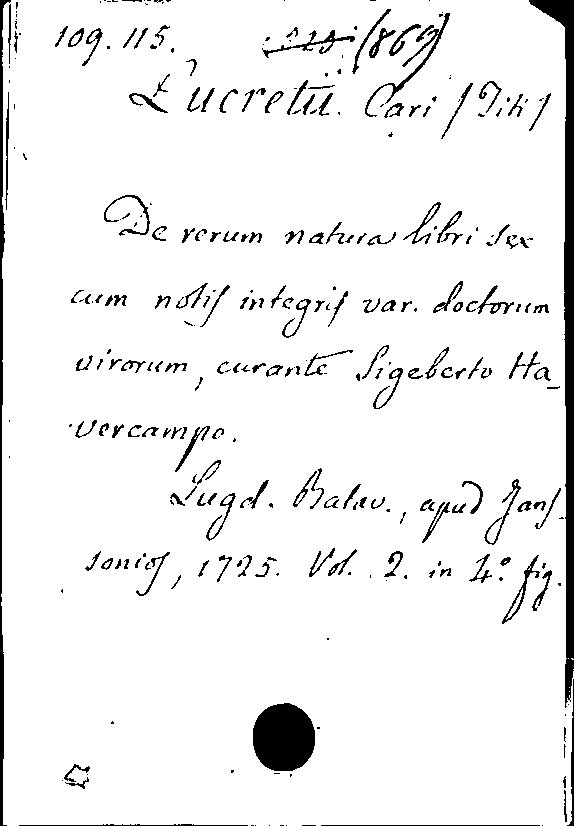 109. 115. (869)
Lucretii Cari / Titi /
De rerum natura libri sex
cum notis integris var. doctorum
virorum, curante Sigeberto Ha-
vercampo.
Lugd. Batav., apud Jans-
sonios, 1725. Vol. 2. in 4º. fig.